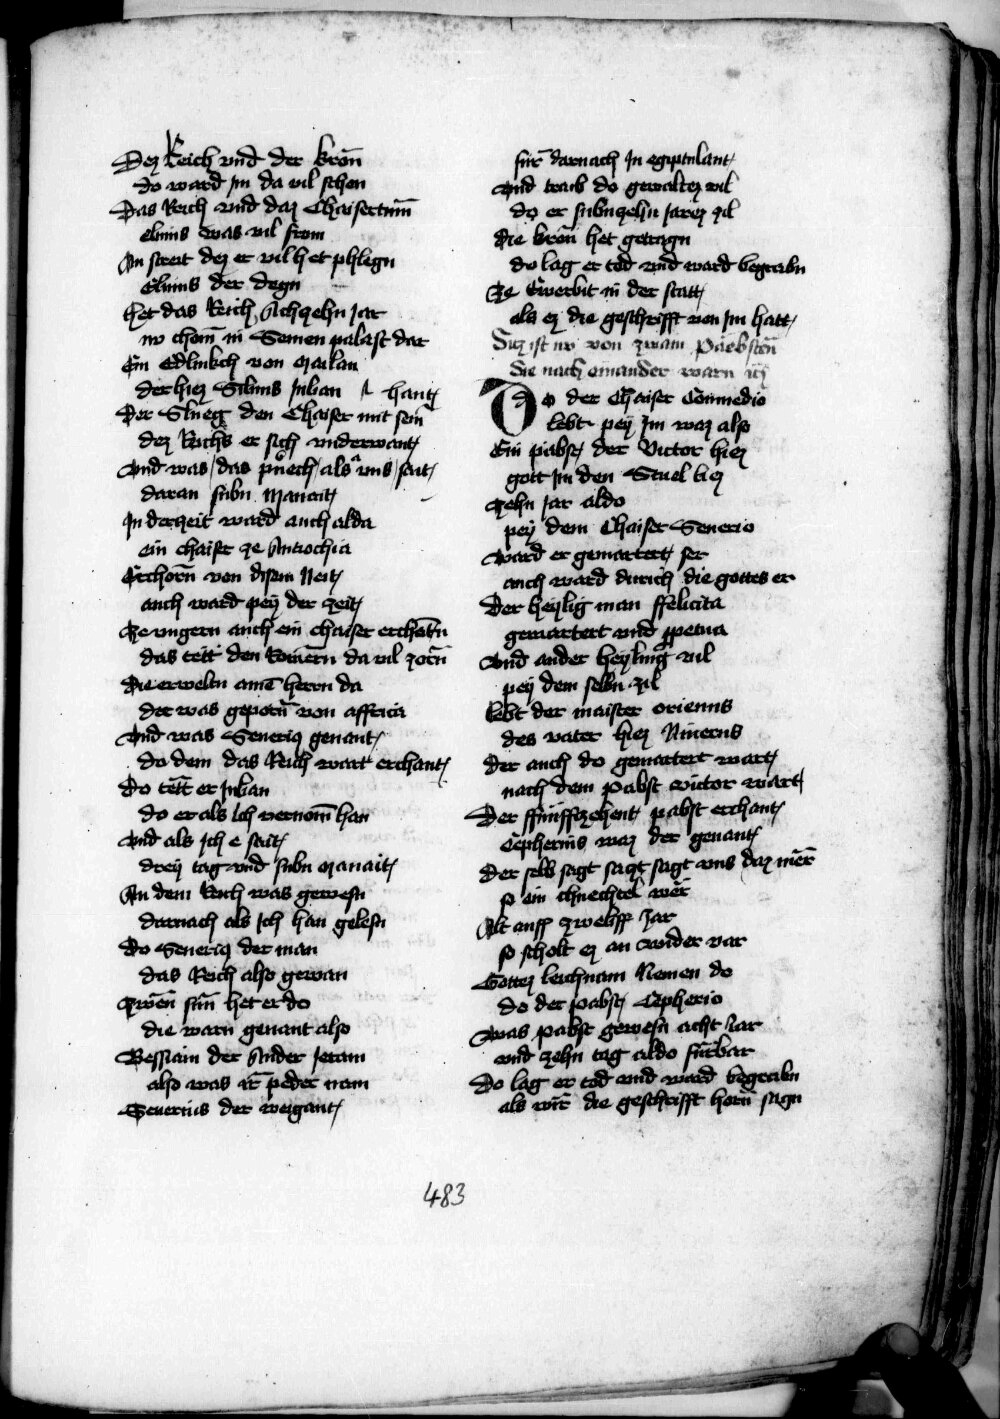 Dez Reich vnd der kron̄
do ward Im da vil schon
Das Reich vnd daz Chaisertum̄
elius was vil from
An streit dez er vil het phlegn
Elius der degn
Het das Reich Achzehn Jar
nv chom̄ in Seinen palast dar
Ein Edlinkch von Mailan
der hiez Siluius Julian hant
Der Slueg den Chaiser mit sein
dez Reichs er sich vnderwant
Vnd was das puech als vns sait
daran subn Manait
In der zeit ward auch alda
ein chaiser ze Antiochia
Erchorn̄ von disem Neit
auch ward peÿ der zeit
Ze vngern auch ein chaiser erchorn̄
das tett den Romern da vil zorn̄
Die erweltn aine herrn da
der was geporn̄ von affrica
Vnd was Seueriꝯ genant
do dem das Reich wart erchant
Do tett er Julian
do er als Ich vernom̄ han
Vnd als Ich e sait
dreÿ tag vnd subn Manait
An dem Reich was gewesn
darnach als Ich han gelesn
Do Seueriꝯ der man
das Reich also gewan
Zwen sun̄ het er do
die warn genant also
Bessiam der Ander Jeram
also was ir peder nam
Seuerius der weigant
fur darnach In egiptulant
Vnd traib do gewaltez vil
do er subnzehn Jarez zil
die kron het getragn
do lag er tod vnd ward begrabn
Ze Ewerbit in der statt
als ez die geschrifft von Im hatt
Daz ist nv von zwain Päebstn̄
die nach einander warn iij
Do der Chaiser Commedio
lebt peÿ Im waz also
Ein pabst der Victor hiez
gott Im den Stuel liez
zehn Jar aldo
peÿ dem Chaiser Seuerio
ward er gemartert ser
auch ward durich die gottes er
Der heÿlig man ffelicita
gemartert vnd ꝑpetua
Vnd ander heÿling vil
peÿ dem selbn zil
lebt der maister orienus
des vater hiez Niuerus
Der auch do gemartert wart
nach dem pabst victor wart
Der ffünffzehent pabst erchant
Cepherius waz der genant
Der selb sagt sagt sagt vns daz mer
so ein chnechtel wer
Alt auff zweliff Jar
so scholt ez an wider var
Gottez leichnam Nemen do
do der pabst Cepherio
Was pabst gewesn acht Jar
vnd zehn tag aldo furbar
Do lag er tod vnd ward begrabn
als wir die geschrifft horn̄ sagn
483